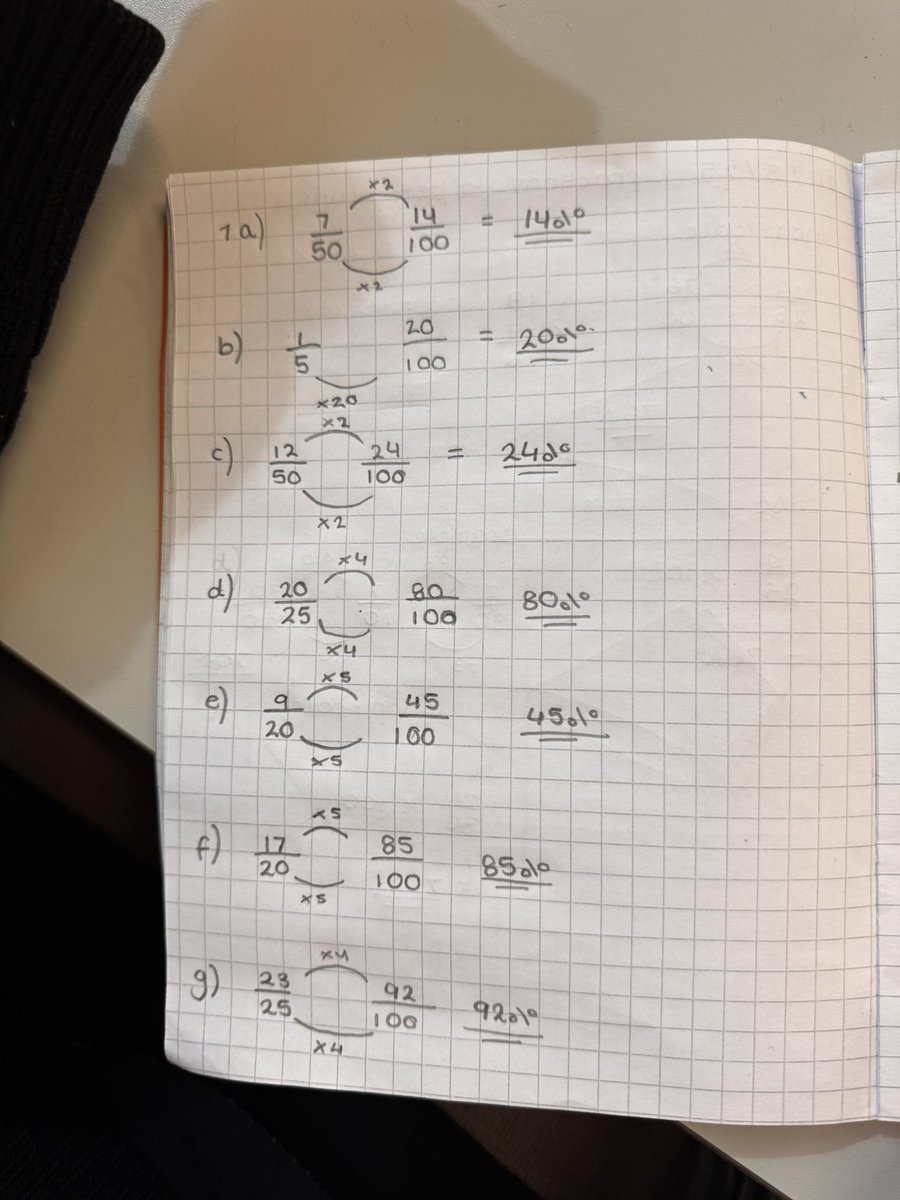 ×2
1a) 7/50 14/100 = 14%
×2
b) 1/5 20/100 = 20%
×20
×2
c) 12/50 24/100 = 24%
×2
×4
d) 20/25 80/100 80%
×4
×5
e) 9/20 45/100 45%
×5
×5
f) 17/20 85/100 85%
×5
×4
g) 23/25 92/100 92%
×4